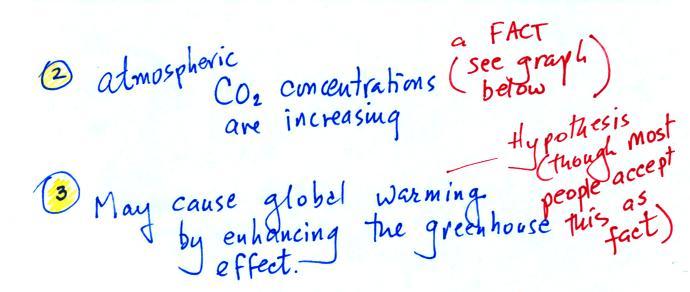 ② atmospheric
CO₂ concentrations
are increasing
a FACT
(see graph
below)
③ May cause global warming
by enhancing the greenhouse
effect.
Hypothesis
(though most
people accept
this as
fact)